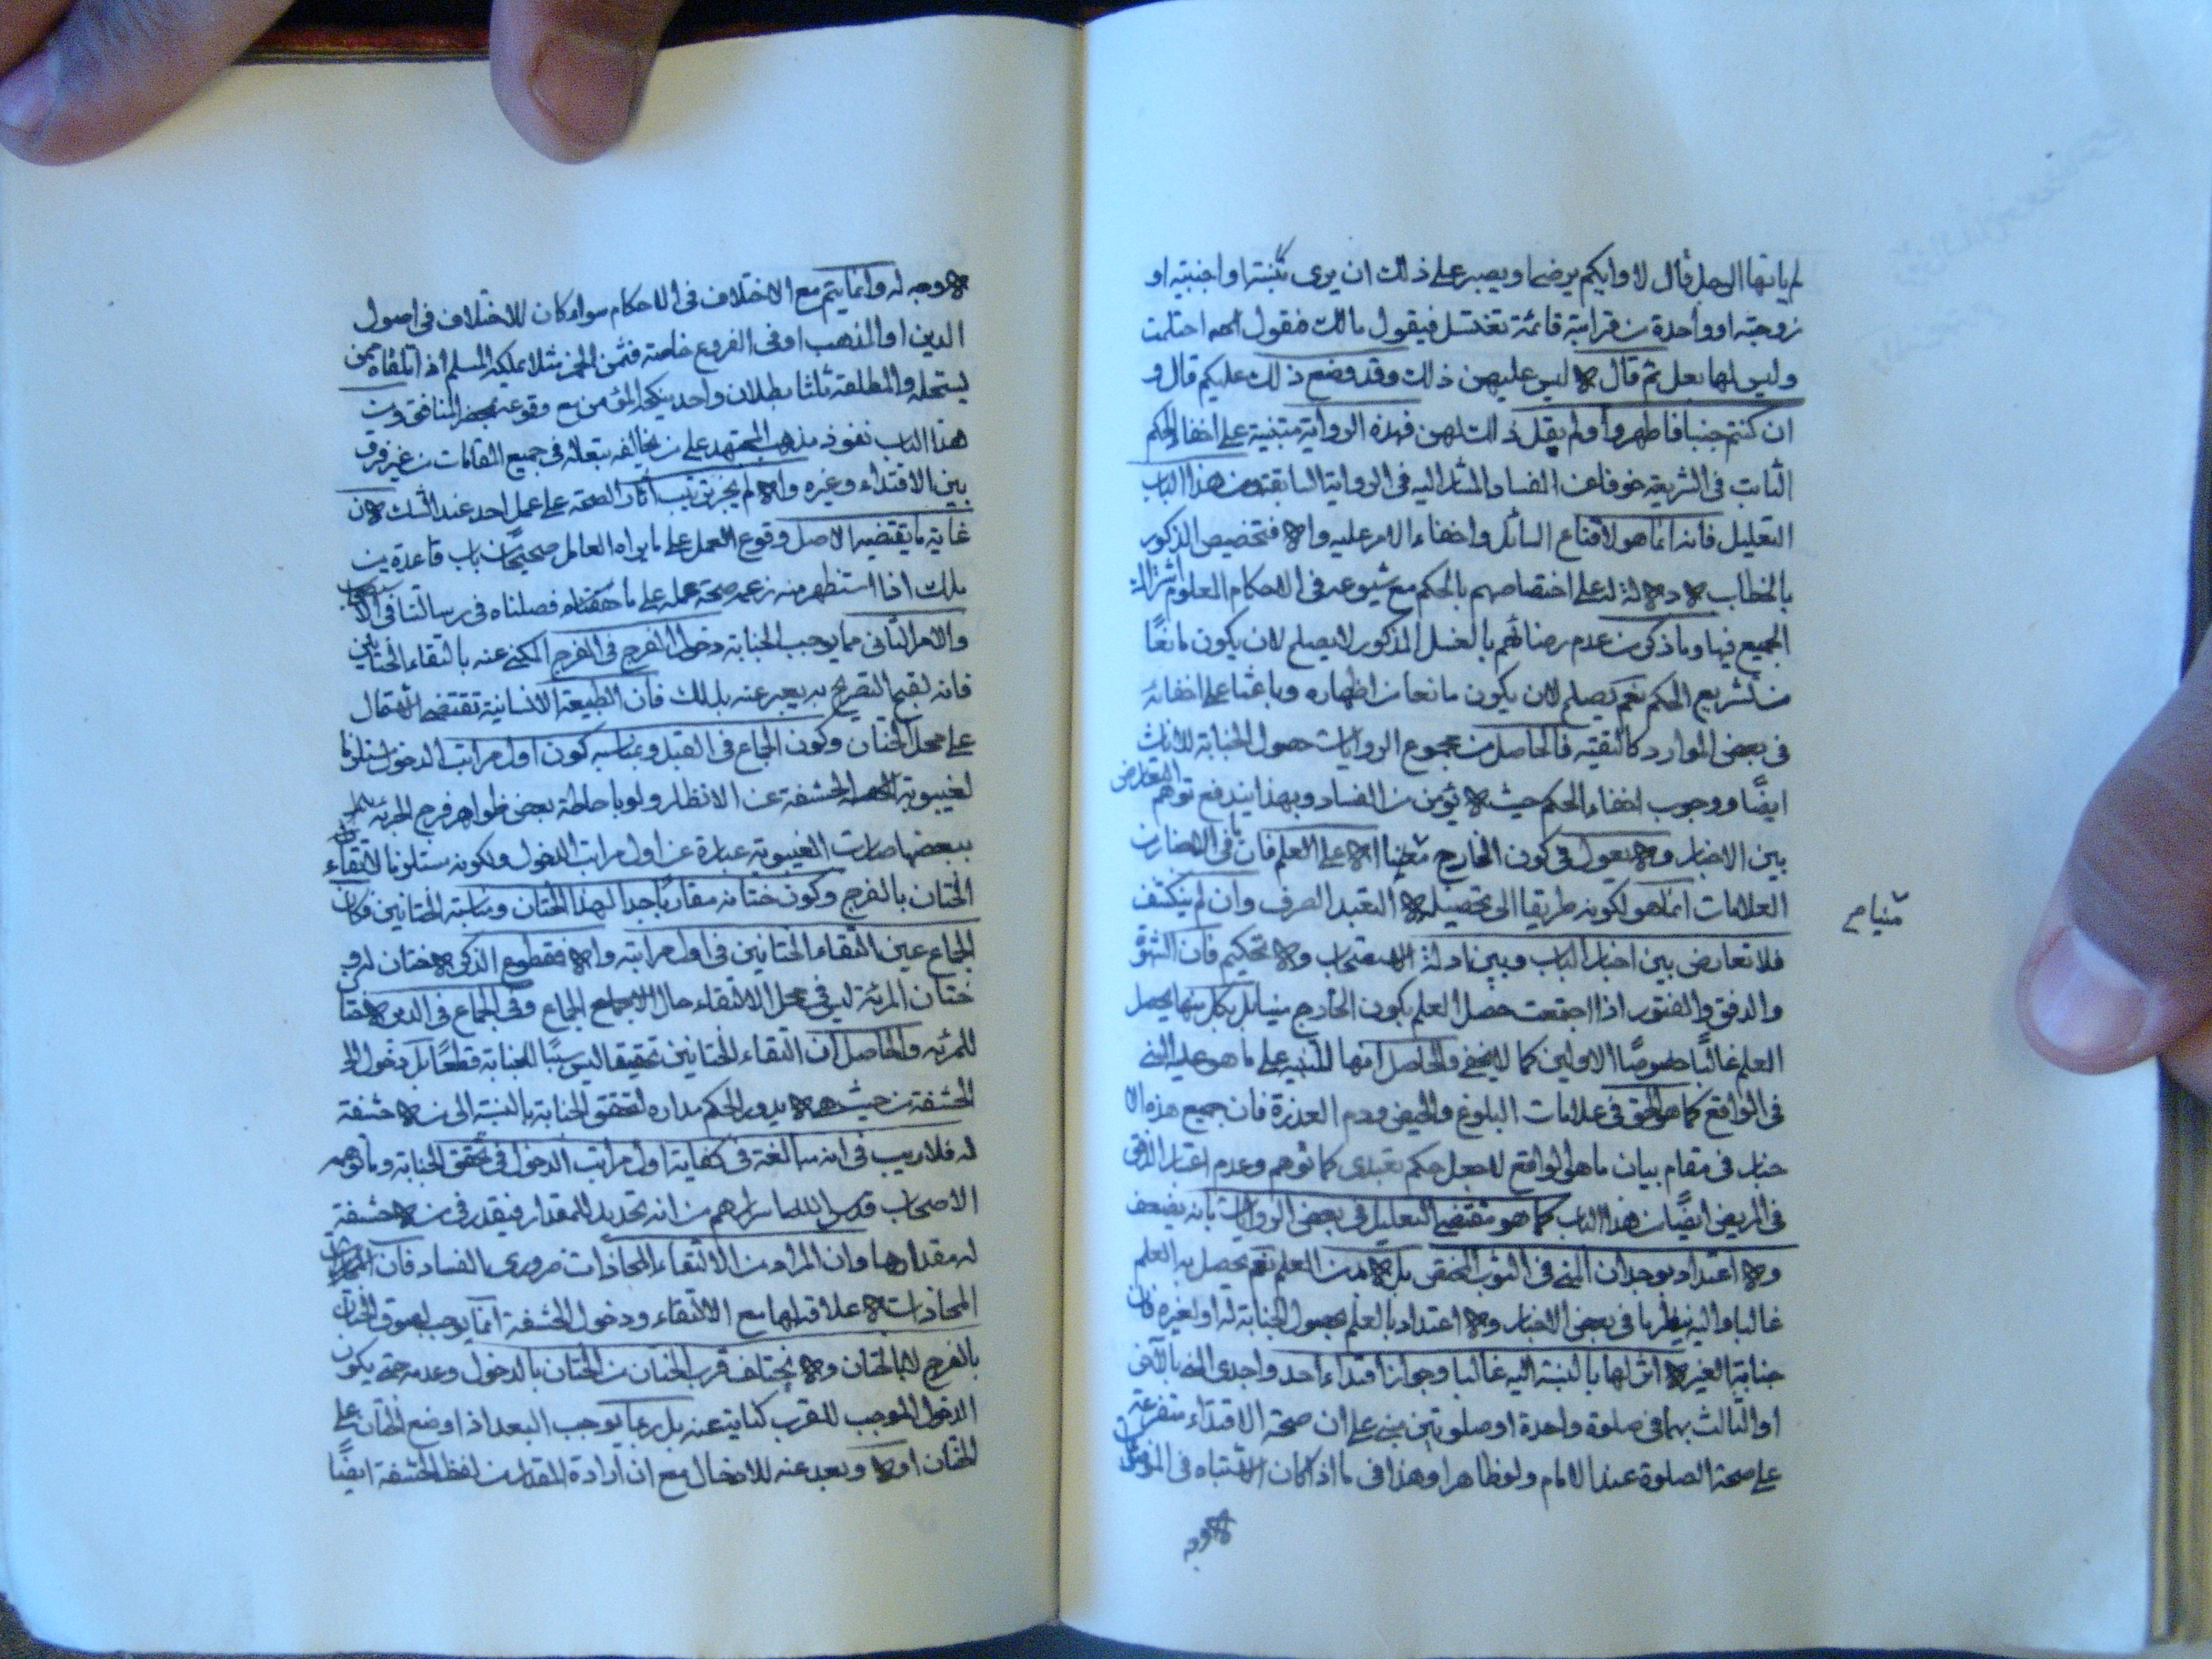 لم ياتها الرجل قال لا وايكم يرضى او يصبر على ذلك ان يرى بنته او اجنبيته او
زوجته او واحدة من قرابته قائمة تغتسل فيقول مالك فتقول احتلمت
وليس لها بعل ثم قال لا ليس عليهن ذلك وقد وضع ذلك عليكم قال و
ان كنتم جنبا فاطهروا ولم يقل ذلك لهن فهذه الرواية مبتنية على اخفاء الحكم
الثابت فى الشريعة خوفا من الفساد المشار اليه فى الرواية السابقة ومن هذا الباب
التعليل فانه انما هو لاقناع السائل واخفاء الامر عليه والا فتخصيص الذكور
بالخطاب لا دلالة له على اختصاصهم بالحكم مع شيوعه فى الاحكام المعلوم اشتراك
الجميع فيها وما ذكر من عدم رضائهم بالغسل المذكور لا يصلح لان يكون مانعًا
من تشريع الحكم نعم يصلح لان يكون مانعا من اظهاره وباعثا على اخفائه
فى بعض الموارد كالتقية فالحاصل من مجموع الروايات حصول الجنابة للاناث
ايضًا ووجوب اخفاء الحكم حيث لا يؤمن من الفساد وبهذا يندفع توهم التعارض
بين الاخبار ولا تعويل فى كون الخارج منيا الا على العلم فان ما فى الاخبار من
العلامات انما هو لكونه طريقا الى تحصيله لا التعبد الصرف وان لم ينكشف
فلا تعارض بين اخبار الباب وبين ادلة الاستصحاب ولا تحكيم فان الشهوة
والدفق والفتور اذا اجتمعت حصل العلم بكون الخارج منيا بل بكل منها يحصل
العلم غالبًا خصوصًا الاولين كما لا يخفى والحاصل انها للتنبيه على ما هو عليه المنى
فى الواقع كما هو الحق فى علامات البلوغ والحيض ودم العذرة فان جميع هذه الا
خبار فى مقام بيان ما هو الواقع لا جعل حكم تعبدى كما توهم وعدم اعتبار الدفق
فى المريض ايضًا من هذا الباب كما هو مقتضى التعليل فى بعض الروايات بانه يضعف
ولا اعتداد بوجدان المنى فى الثوب المختص بل لا بد من العلم نعم يحصل به العلم
غالبا واليه ينظر ما فى بعض الاخبار ولا اعتداد بالعلم بحصول الجنابة له او لغيره فان
جنابة الغير لا اثر لها بالنسبة اليه غالبا وجواز اقتداء احد واجدى المنى بالآخر
او الثالث بهما فى صلوة واحدة او صلوتين مبنى على ان صحة الاقتداء متفرعة
على صحة الصلوة عند الامام ولو ظاهرا وهذا فى ما اذا كان الاشتباه فى الموضوع
لا وجه
لا وجه له وانما يتم مع الاختلاف فى الاحكام سواء كان للاختلاف فى اصول
الدين او المذهب او فى الفروع خاصة فثمن الخمر مثلا يملكه المسلم اذا تلقاه ممن
يستحله والمطلقة ثلثا بطلاق واحد ينكحها المؤمن مع وقوعه بمحضر المنافق ومن
هذا الباب نفوذ مذهب المجتهد على من يخالفه تبعا له فى جميع المقامات من غير فرق
بين الاقتداء وغيره والا لم يجز ترتيب آثار الصحة على عمل احد عند الشك لان
غاية ما يقتضيه الاصل وقوع العمل على ما يراه العامل صحيحًا من باب قاعدة من
ملك اذا استظهر منه زعمه صحة عمله على ما حققناه وفصلناه فى رسالتنا فى الاستصحاب
والامر الثانى مما يوجب الجنابة دخول الفرج فى الفرج المكنى عنه بالتقاء الختانين
فانه لقبح التصريح به يعبر عنه بذلك فان الطبيعة الانسانية تقتضى
على محل الختان وكون الجماع فى القبل ويناسبه كون اول مراتب الدخول مستلزما
لغيبوبة الحشفة عن الانظار ولو باحاطة بعض ظواهر فرج المرئة
ببعضها صارت الغيبوبة عبارة عن اول مراتب الدخول ولكونه مستلزما لالتقاء
الختان بالفرج وكون ختانه مقاربًا جدا لهذا الختان ومناسبة الختانين فكان
الجماع عين التقاء الختانين فى اول مراتبه والا فمقطوع الذكر لا ختان له و
ختان المرئة ليس فى محل الالتقاء حال الجماع وفى الجماع فى الدبر لا ختا
للمرئة والحاصل ان التقاء الختانين تحقيقا ليس سببًا للجنابة قطعًا بل دخول
الحشفة من حيث هو لا يدور الحكم مداره لتحقق الجنابة بالنسبة الى من لا حشفة
له فلا ريب فى انه مبالغة فى كفاية اول مراتب الدخول فى تحقق الجنابة وما توهمه
الاصحاب قدس الله اسرارهم من انه تحديد للمقدار فيقدر فى من لا حشفة
له مقدارها وان المراد من الالتقاء المحاذات ضرورى الفساد فان
المحاذات لا علاقة لها مع الالتقاء ودخول الحشفة انما يوجب لصوق الختان
بالفرج لا بالختان ولا يختلف قرب الختان من الختان بالدخول وعدمه حتى يكون
الدخول الموجب للقرب كناية عنه بل ربما يوجب البعد اذا وضع الختان على
الختان اولا وبعد عنه للادخال مع ان ارادة المقدار من لفظ الحشفة ايضًا